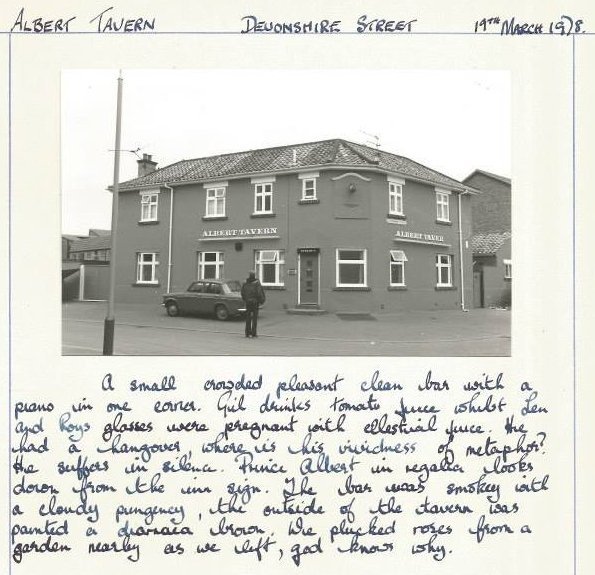 ALBERT TAVERN DEVONSHIRE STREET 19TH MARCH 1978.
ALBERT TAVERN
ALBERT TAVER
A small crowded pleasant clean bar with a
piano in one corner. Gil drinks tomato juice whilst Len
and Roys glasses were pregnant with celestial juice. He
had a hangover, where is his vividness of metaphor?
He suffers in silence. Prince Albert in regalia looks
down from the inn sign. The bar was smokey with
a cloudy pungency, the outside of the tavern was
painted a brown. We plucked roses from a
garden nearby as we left, god knows why.